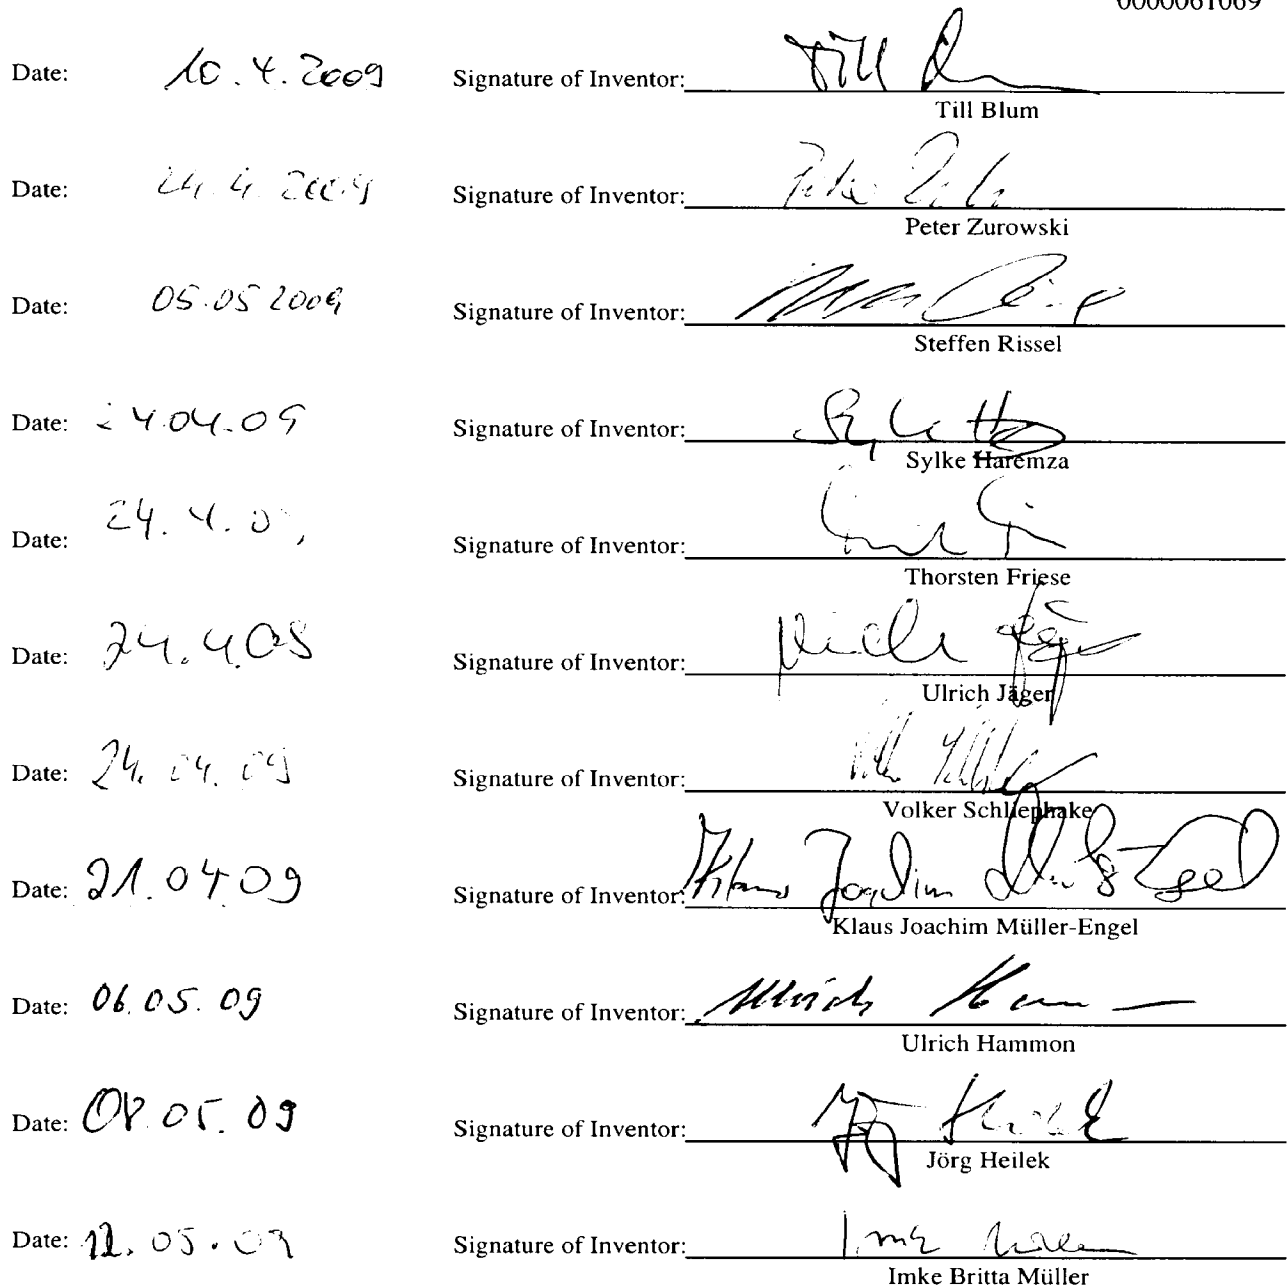 0000061069
Date: 10.4.2009 Signature of Inventor: Till
Till Blum
Date: 24.4.2009 Signature of Inventor: Peter
Peter Zurowski
Date: 05.05 2009 Signature of Inventor:
Steffen Rissel
Date: 24.04.09 Signature of Inventor:
Sylke Haremza
Date: 24.4.0 Signature of Inventor:
Thorsten Friese
Date: 24.4.09 Signature of Inventor: Ulrich Jäger
Ulrich Jäger
Date: 24.04.09 Signature of Inventor:
Volker Schliephake
Date: 21.04 09 Signature of Inventor: Klaus Joachim
Klaus Joachim Müller-Engel
Date: 06.05.09 Signature of Inventor: Ulrich
Ulrich Hammon
Date: 08.05.09 Signature of Inventor: Jörg Heilek
Jörg Heilek
Date: 12.05.09 Signature of Inventor: Imke
Imke Britta Müller